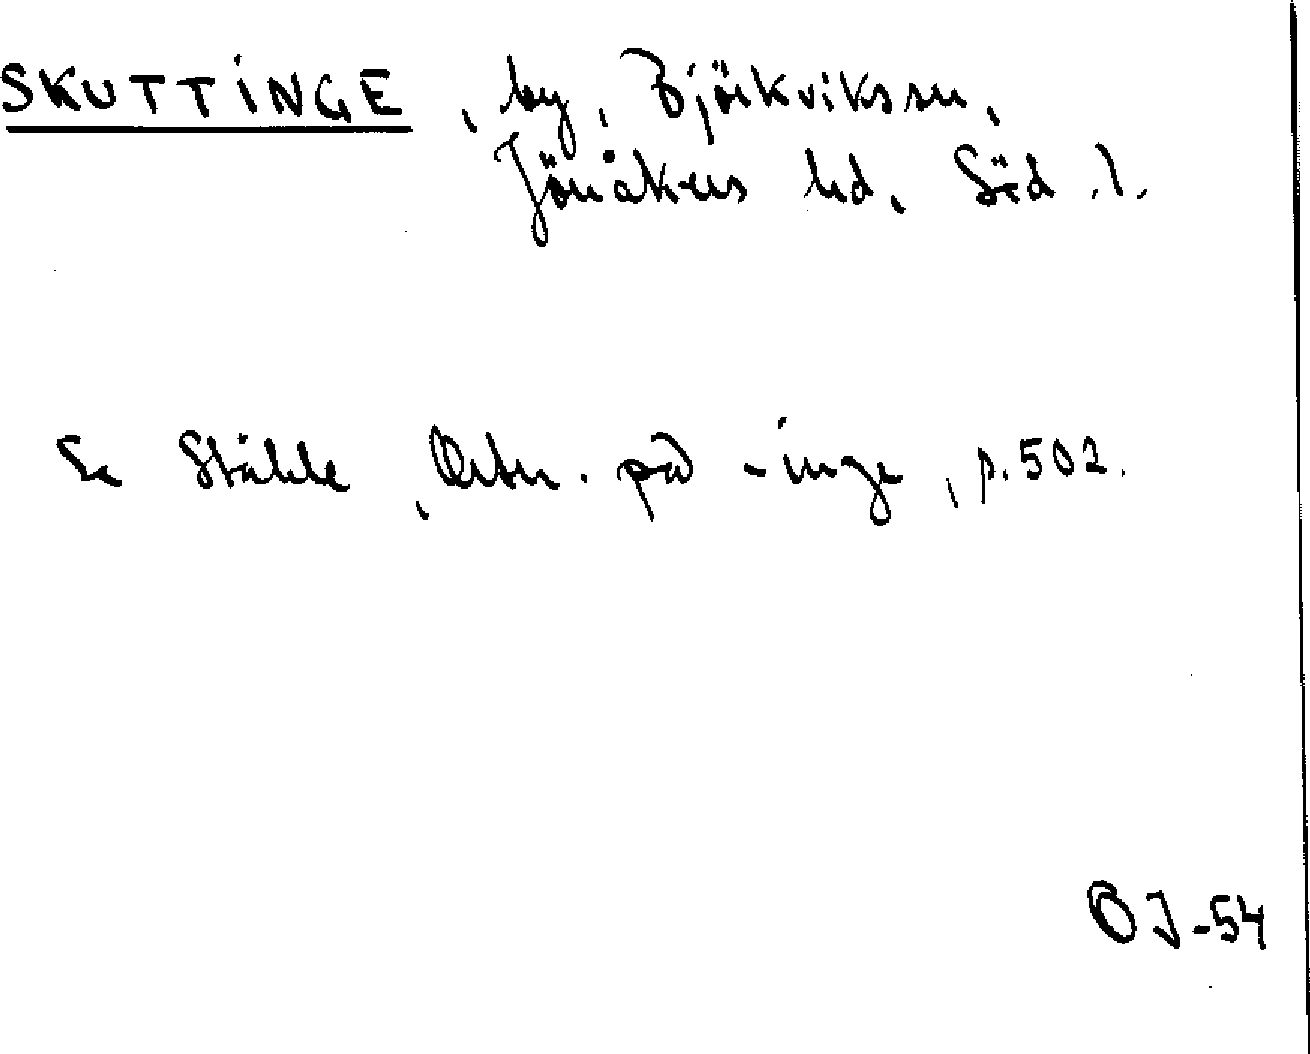 SKUTTINGE, by, Björkviks sn,
Jönåkers hd, Söd.l.
Se Ståhle, Ortn. på -inge, p.502.
OJ-54